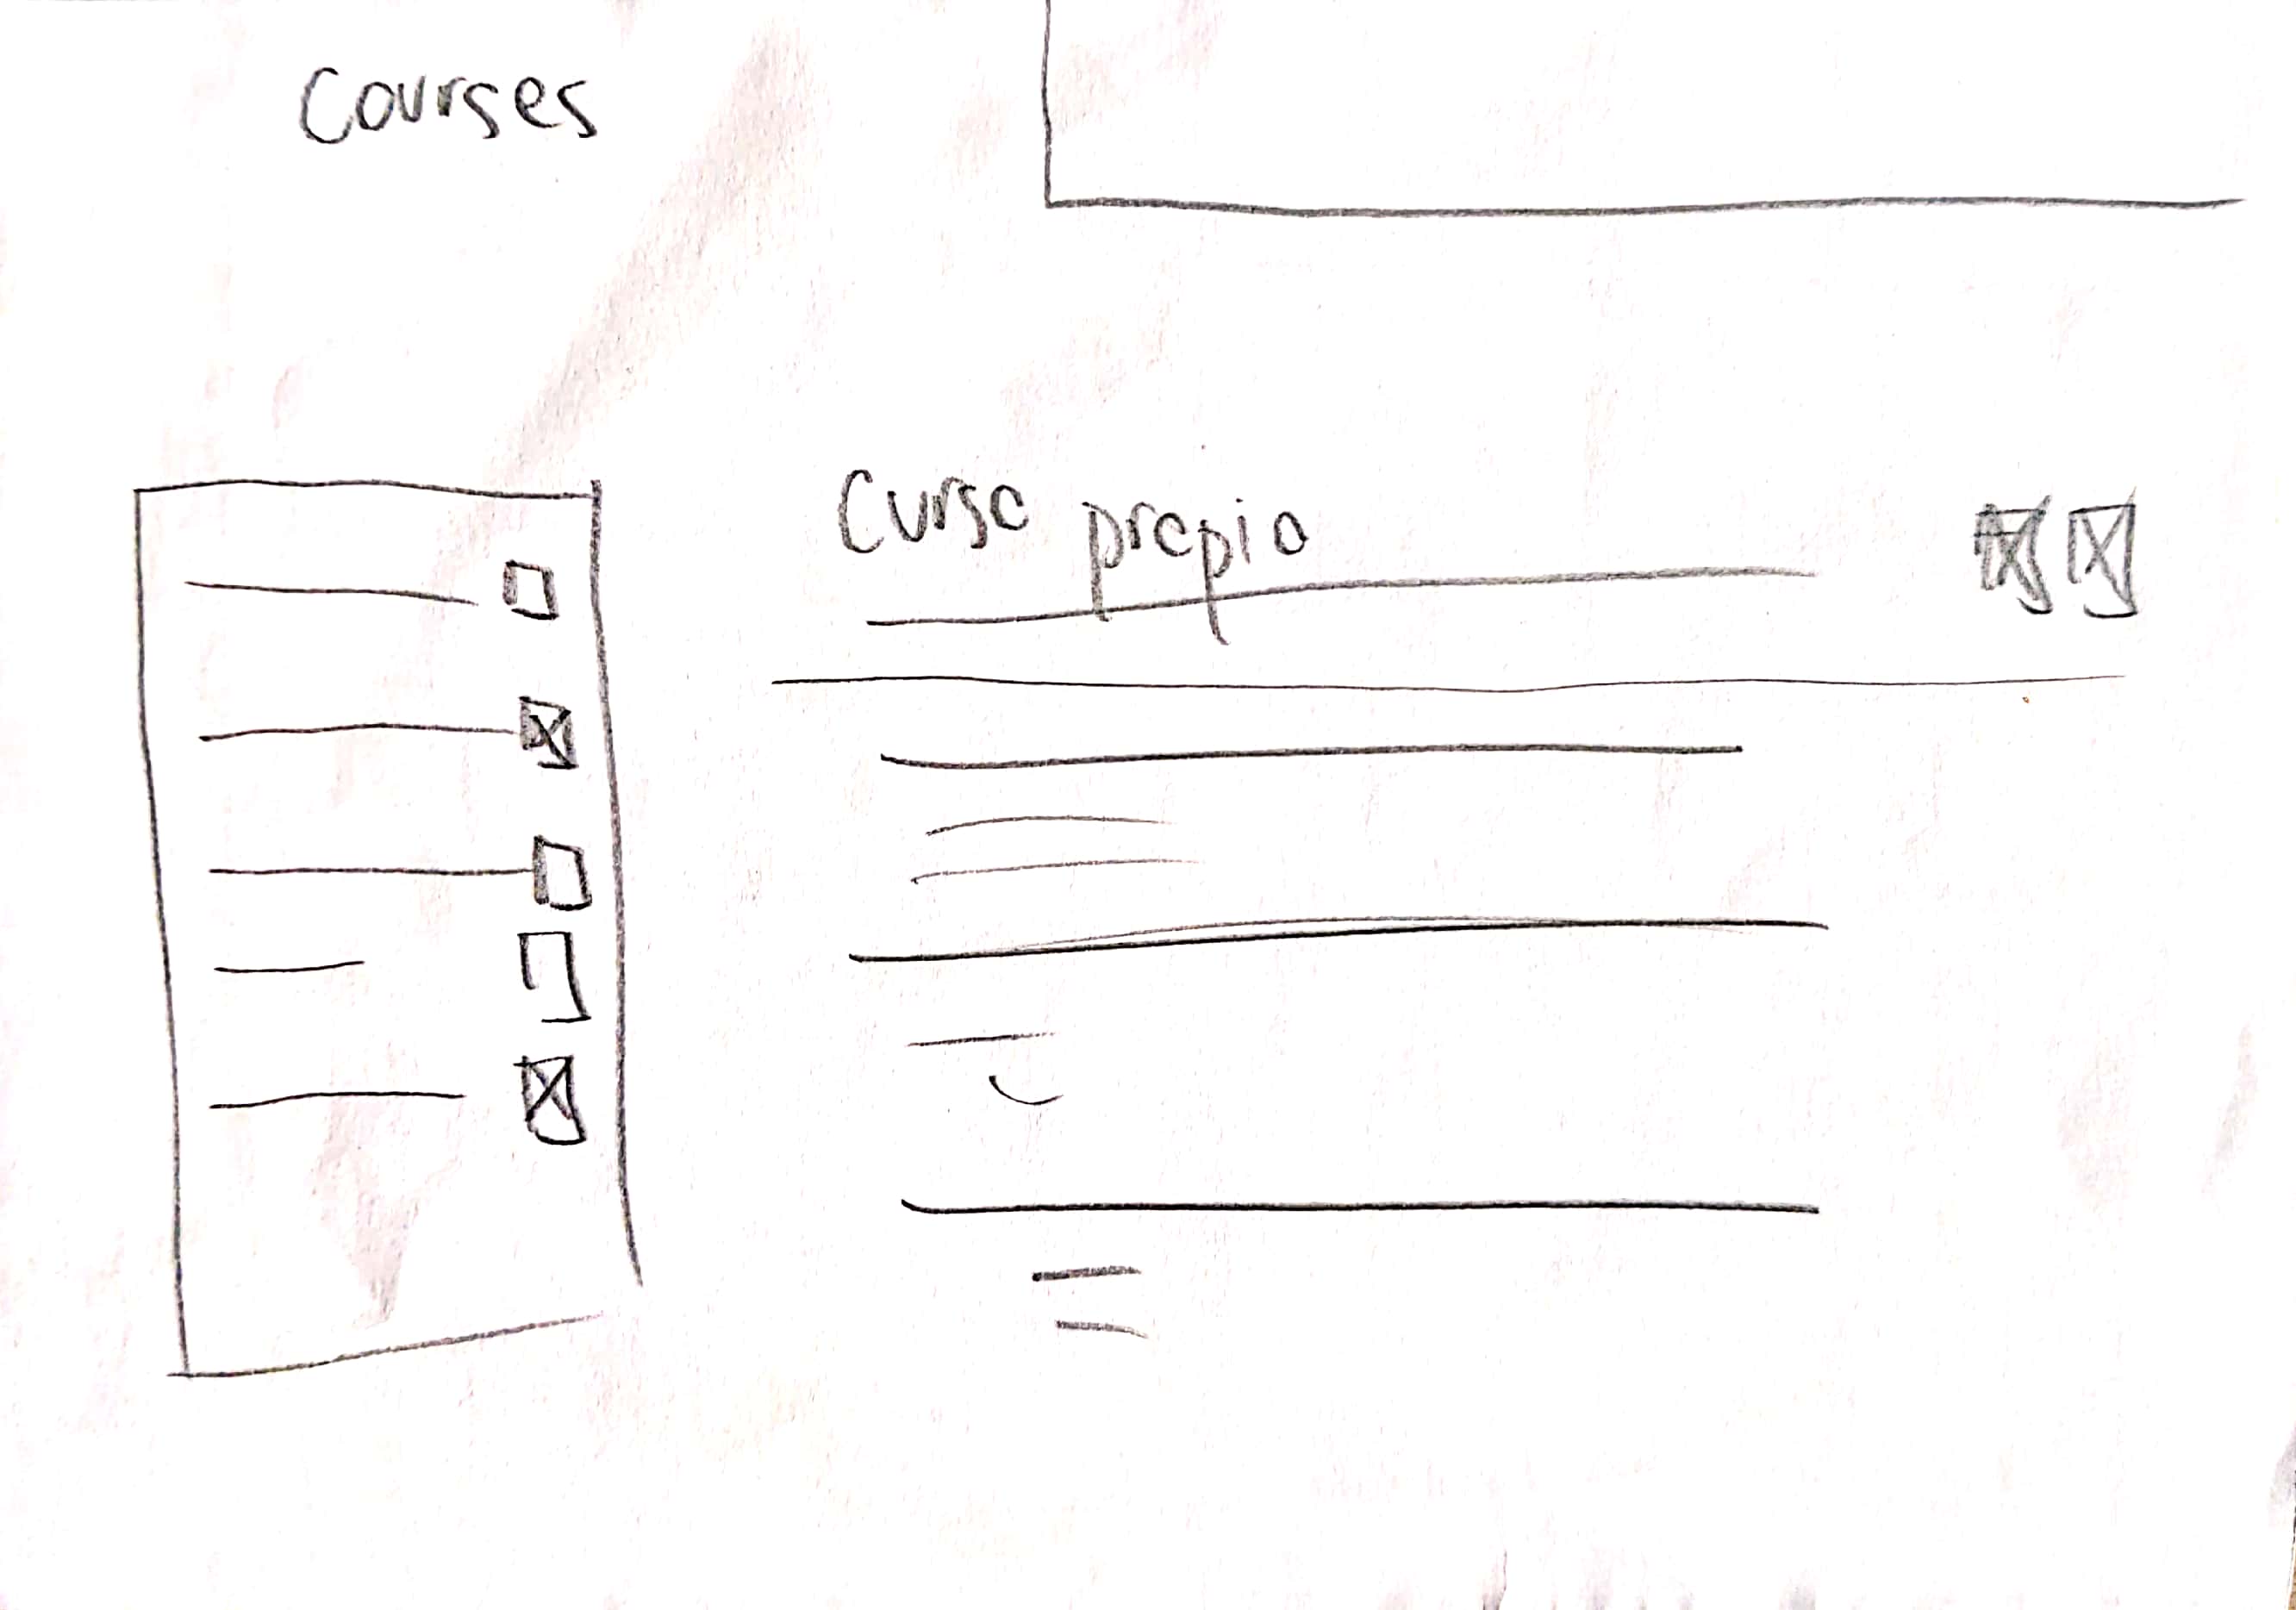 Courses
Curso propio